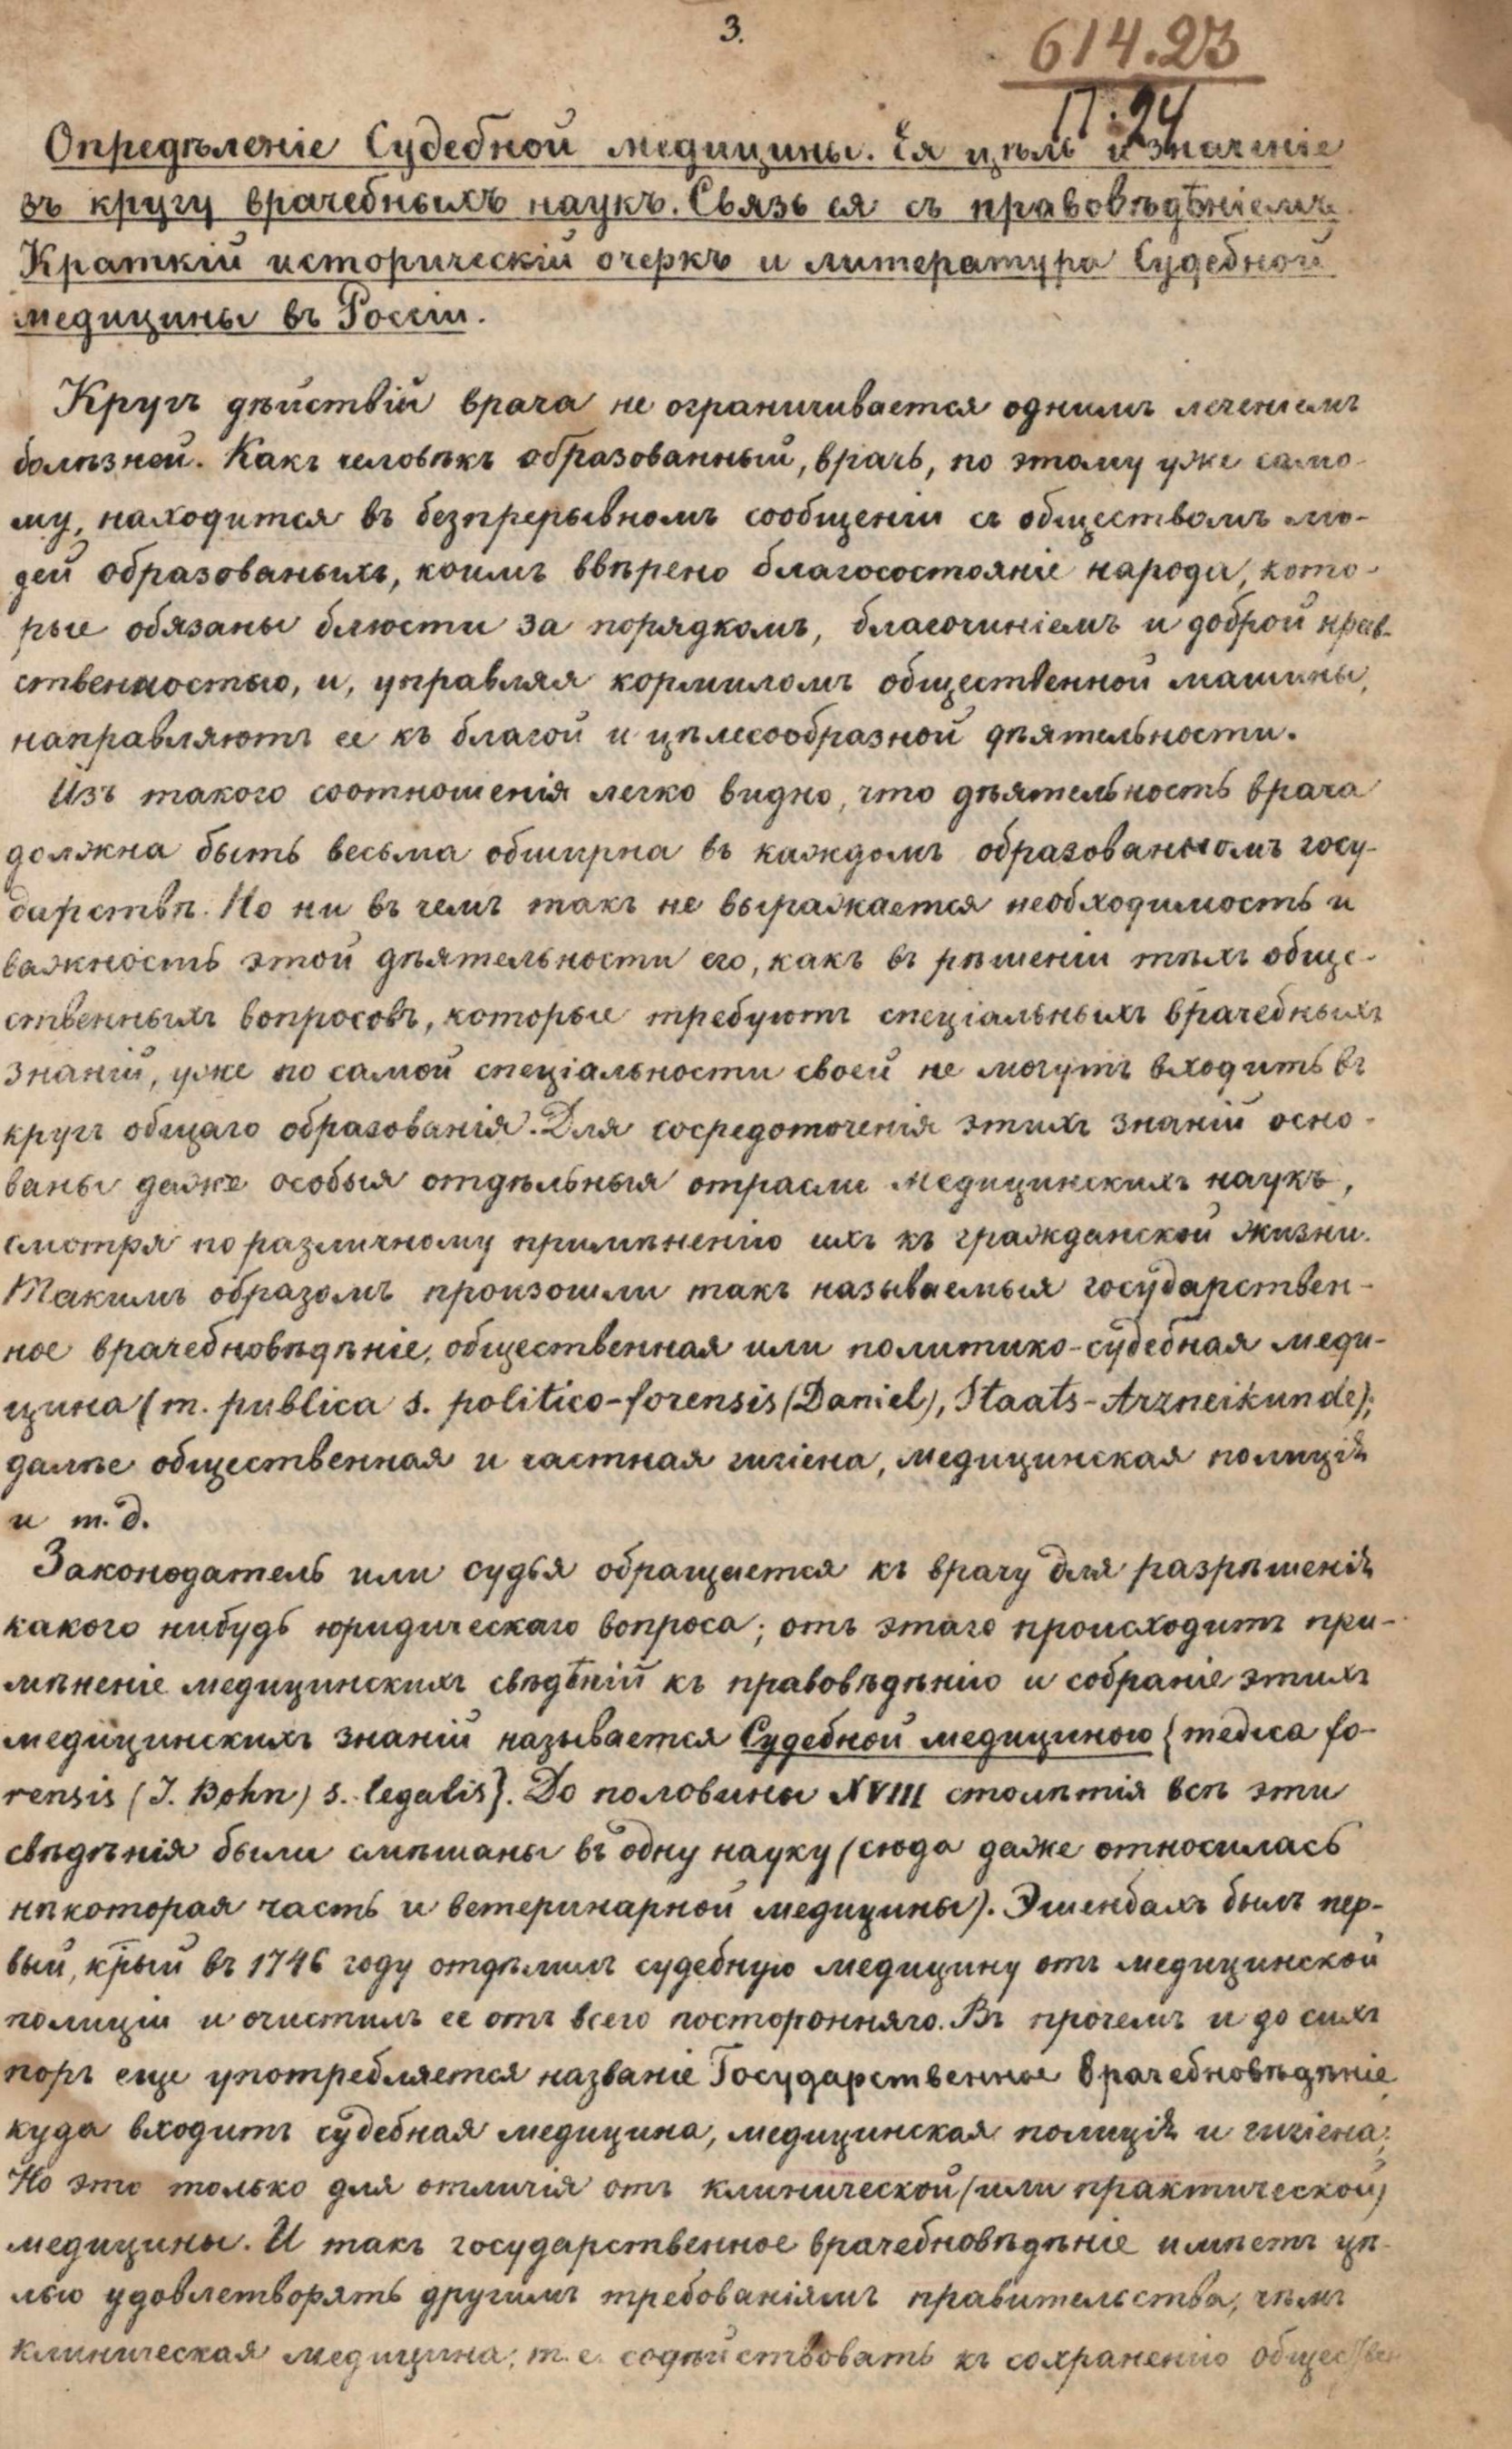 3.
614.23
П.24
Опредѣленіе Судебной медицины. Ея цѣль и значеніе
въ кругу врачебныхъ наукъ. Связь ея съ правовѣдѣніемъ.
Краткій историческій очеркъ и литература Судебной
медицины въ Россіи.
Кругъ дѣйствій врача не ограничивается однимъ леченіемъ
болѣзней. Какъ человѣкъ образованный, врачъ, по этому уже само-
му, находится въ безпрерывномъ сообщеніи съ обществомъ лю-
дей образованыхъ, коимъ ввѣрено благосостояніе народа, кото-
рые обязаны блюсти за порядкомъ, благочиніемъ и доброй нрав-
ственностью, и, управляя кормиломъ общественной машины,
направляютъ ее къ благой и цѣлесообразной дѣятельности.
Изъ такого соотношенія легко видно, что дѣятельность врача
должна быть весьма обширна въ каждомъ образованномъ госу-
дарствѣ. Но ни въ чемъ такъ не выражается необходимость и
важность этой дѣятельности его, какъ въ рѣшеніи тѣхъ обще-
ственныхъ вопросовъ, которые требуютъ спеціальныхъ врачебныхъ
знаній, уже по самой спеціальности своей не могутъ входить въ
кругъ общаго образованія. Для сосредоточенія этихъ знаній осно-
ваны даже особыя отдѣльныя отрасли медицинскихъ наукъ,
смотря по различному примѣненію ихъ къ гражданской жизни.
Такимъ образомъ произошли такъ называемыя государствен-
ное врачебновѣдѣніе, общественная или политико-судебная меди-
цина (m. publica s. politico-forensis (Daniel), Staats-Arzneikunde);
далѣе общественная и частная гигіена, медицинская полиція
и т. д.
Законодатель или судья обращается къ врачу для разрѣшенія
какого нибудь юридическаго вопроса; отъ этаго происходитъ при-
мѣненіе медицинскихъ свѣдѣній къ правовѣдѣнію и собраніе этихъ
медицинскихъ знаній называется Судебной медициною {medica fo-
rensis (J. Bohn) s. legalis}. До половины XVIII столѣтія всѣ эти
свѣдѣнія были смѣшаны въ одну науку (сюда даже относилась
нѣкоторая часть и ветеринарной медицины). Эшенбахъ былъ пер-
вый, к̅рый въ 1746 году отдѣлилъ судебную медицину отъ медицинской
полиціи и очистилъ ее отъ всего посторонняго. Въ прочемъ и до сихъ
поръ еще употребляется названіе Государственное Врачебновѣдѣніе,
куда входитъ судебная медицина, медицинская полиція и гигіена;
Но это только для отличія отъ клинической (или практической)
медицины. И такъ государственное врачебновѣдѣніе имѣетъ цѣ-
лью удовлетворять другимъ требованіямъ правительства, чѣмъ
клиническая медицина; т. е. содѣйствовать къ сохраненію обществен